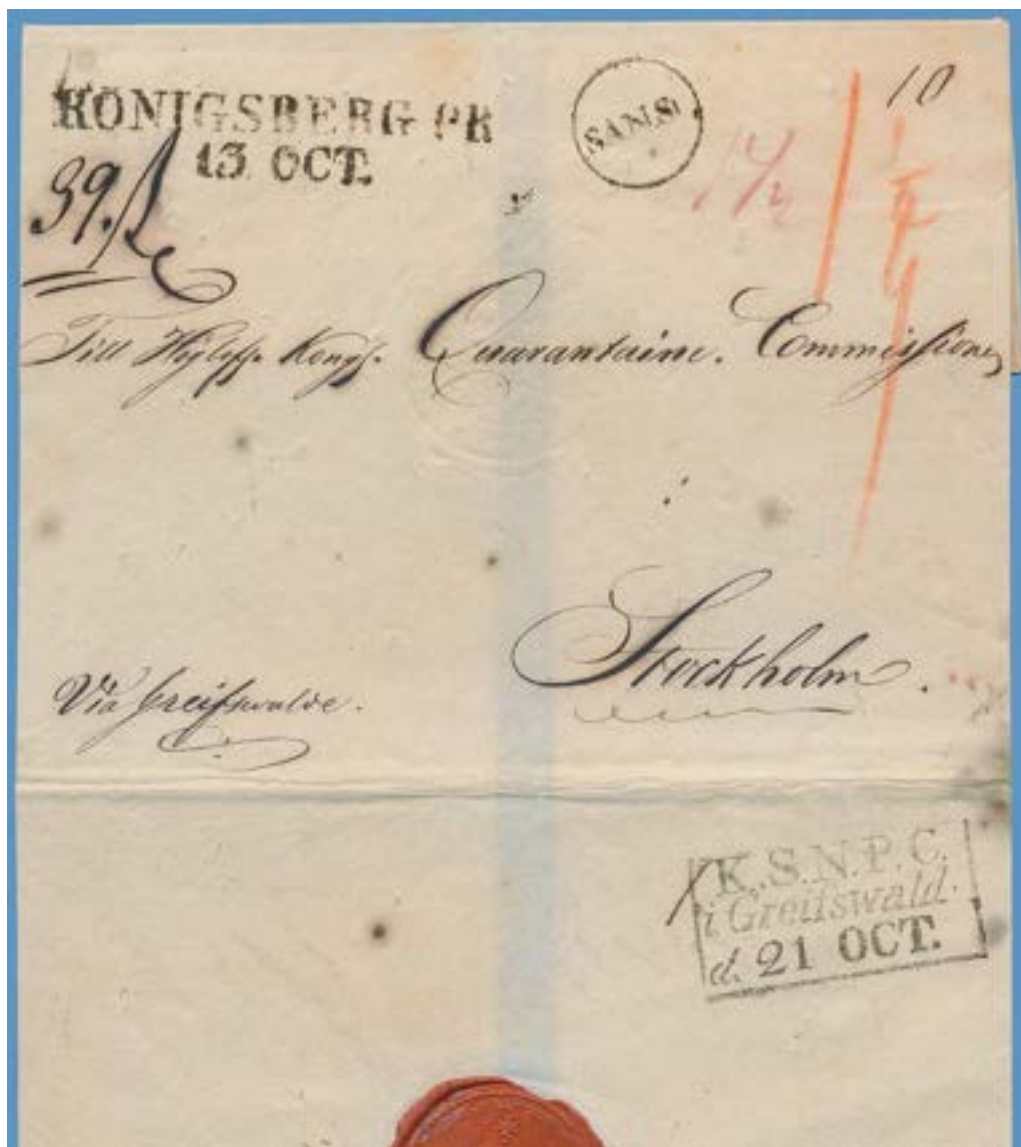 KÖNIGSBERG PR
13 OCT.
S.A.N.S.
10
39.
Till Höglofl. Kongl. Quarantaine. Commissionen
Stockholm.
Via Greifswalde.
K.S.N.P.C.
i Greifswald.
d. 21 OCT.